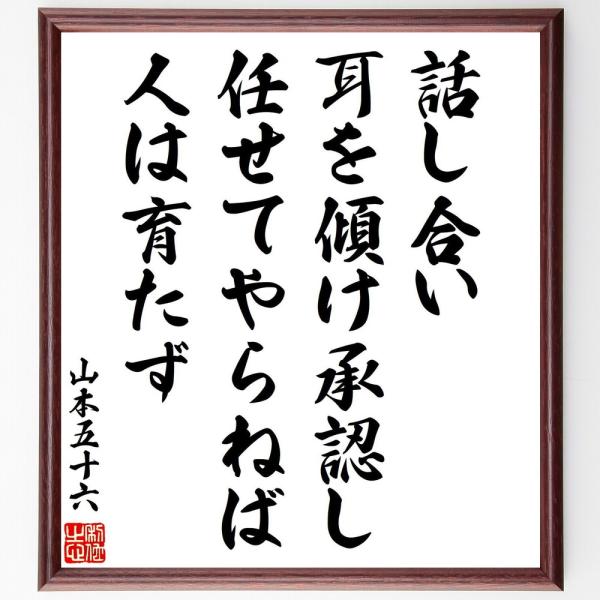 話し合い
耳を傾け承認し
任せてやらねば
人は育たず
山本五十六